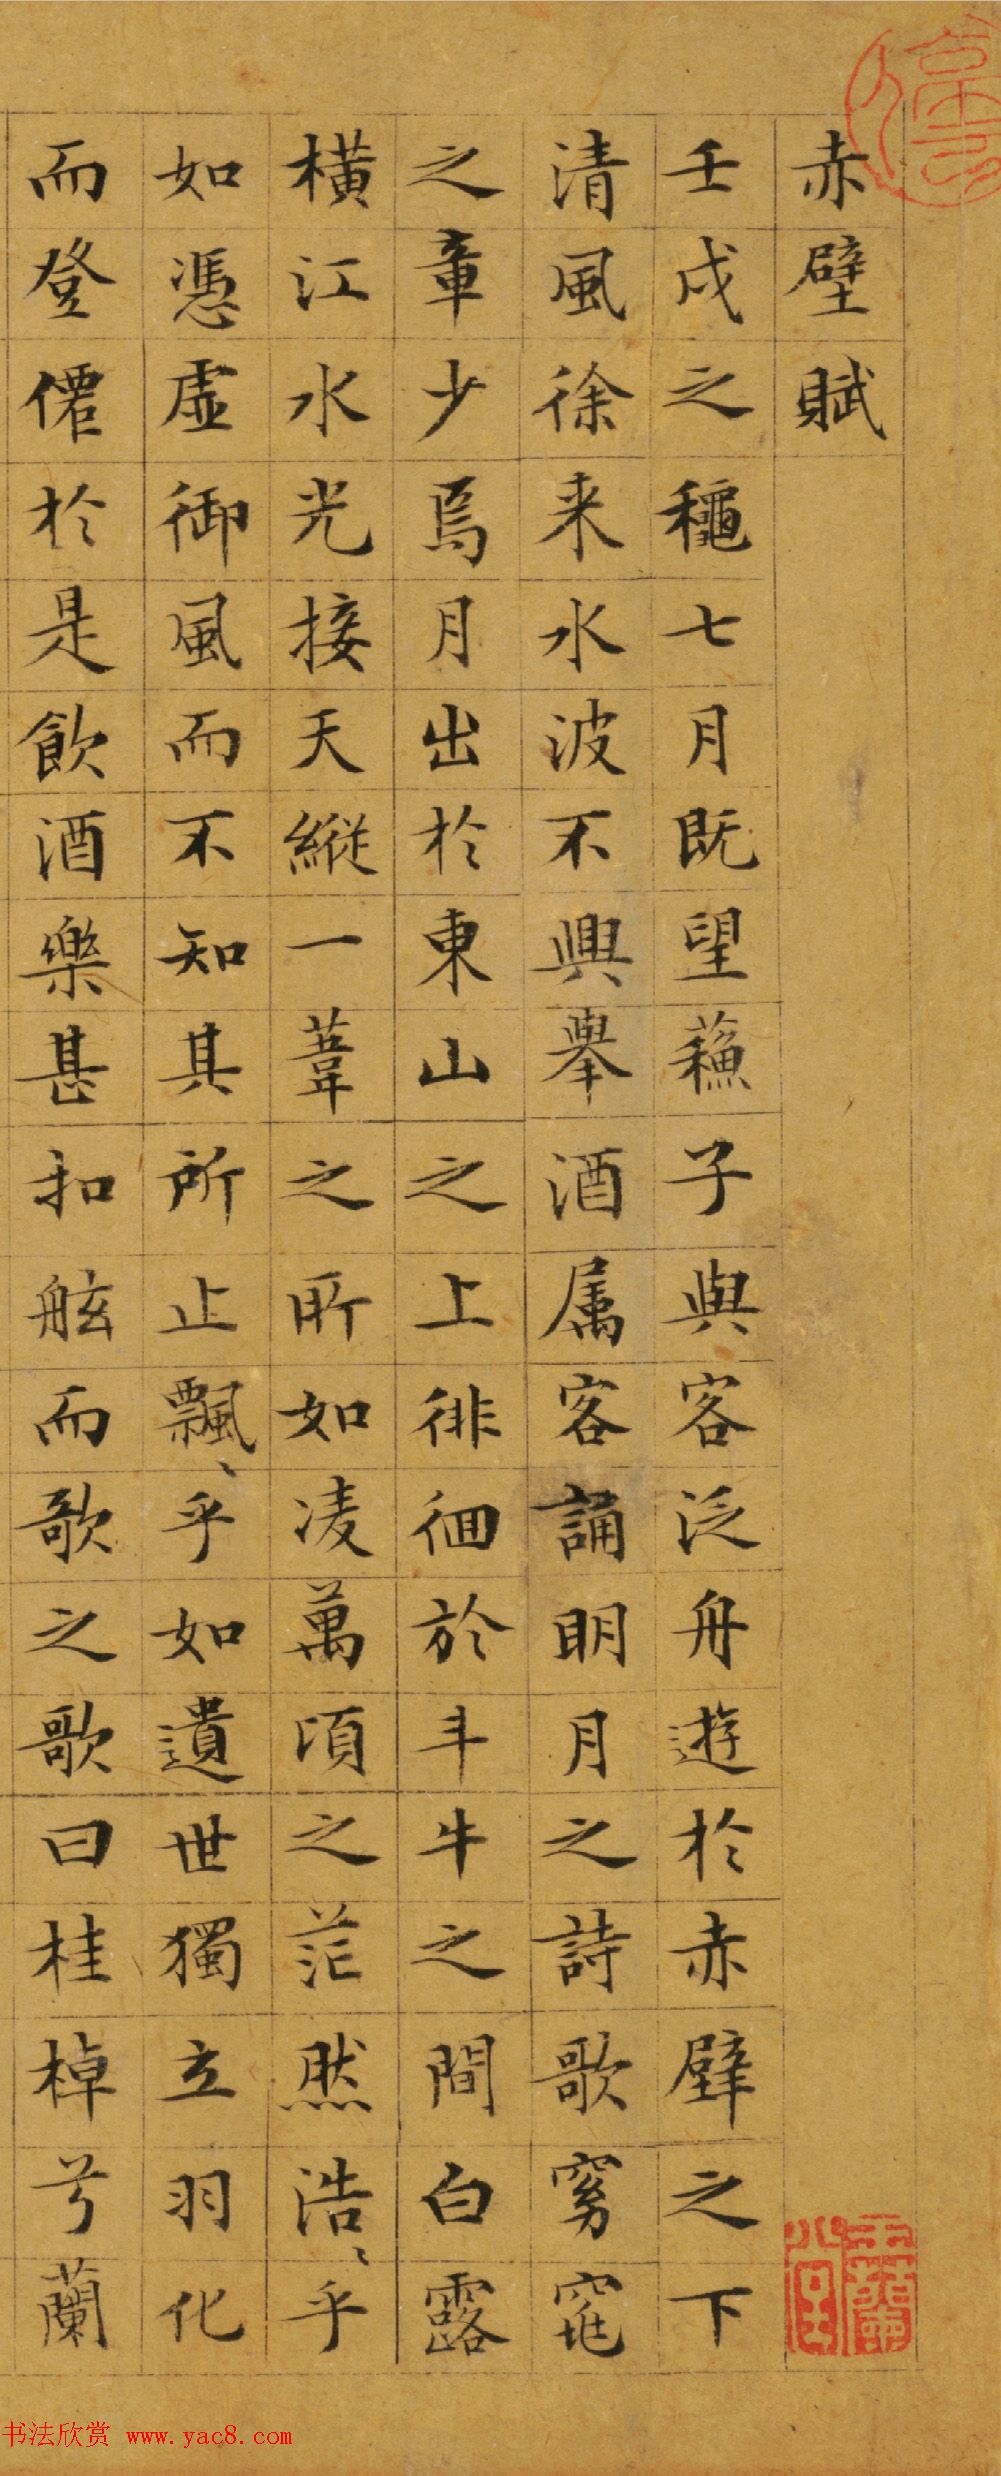 赤壁賦
壬戌之龝七月既望蘓子與客泛舟遊於赤壁之下
清風徐来水波不興舉酒属客誦明月之詩歌窈窕
之章少焉月出於東山之上徘徊於斗牛之間白露
橫江水光接天縱一葦之所如凌萬頃之茫然浩〻乎
如憑虛御風而不知其所止飄〻乎如遺世獨立羽化
而登僊於是飲酒樂甚扣舷而歌之歌曰桂棹兮蘭
书法欣赏 www.yac8.com